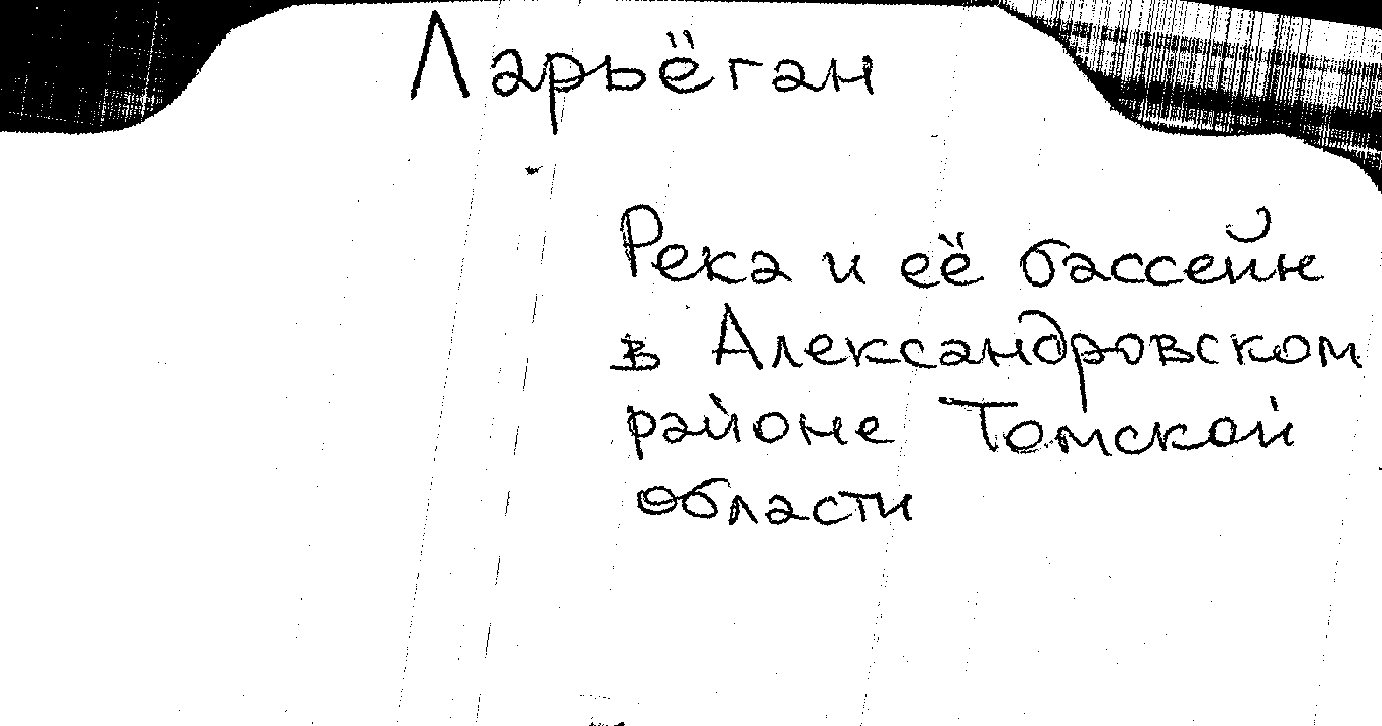 Ларьёган
Река и её бассейн
в Александровском
районе Томской
области